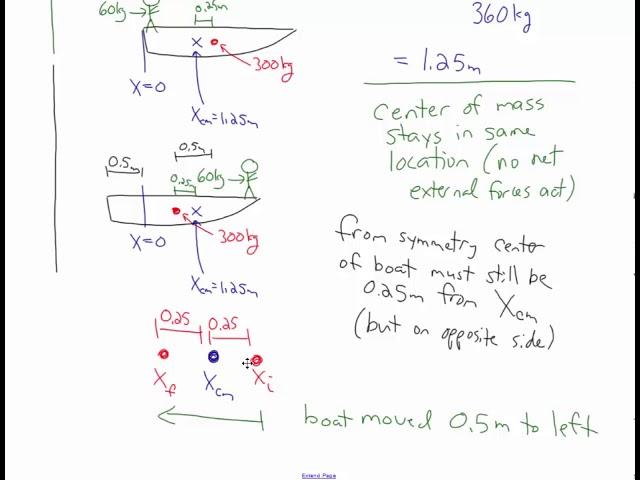 60kg
0.25m
X
300kg
X=0
Xcm=1.25m
360kg
= 1.25m
center of mass
stays in same
location (no net
external forces act)
0.5m
0.5m
0.25m
60kg
X
300kg
X=0
Xcm=1.25m
from symmetry center
of boat must still be
0.25m from Xcm
(but on opposite side)
0.25 0.25
Xf Xcm Xi
boat moved 0.5m to left
Extend Page